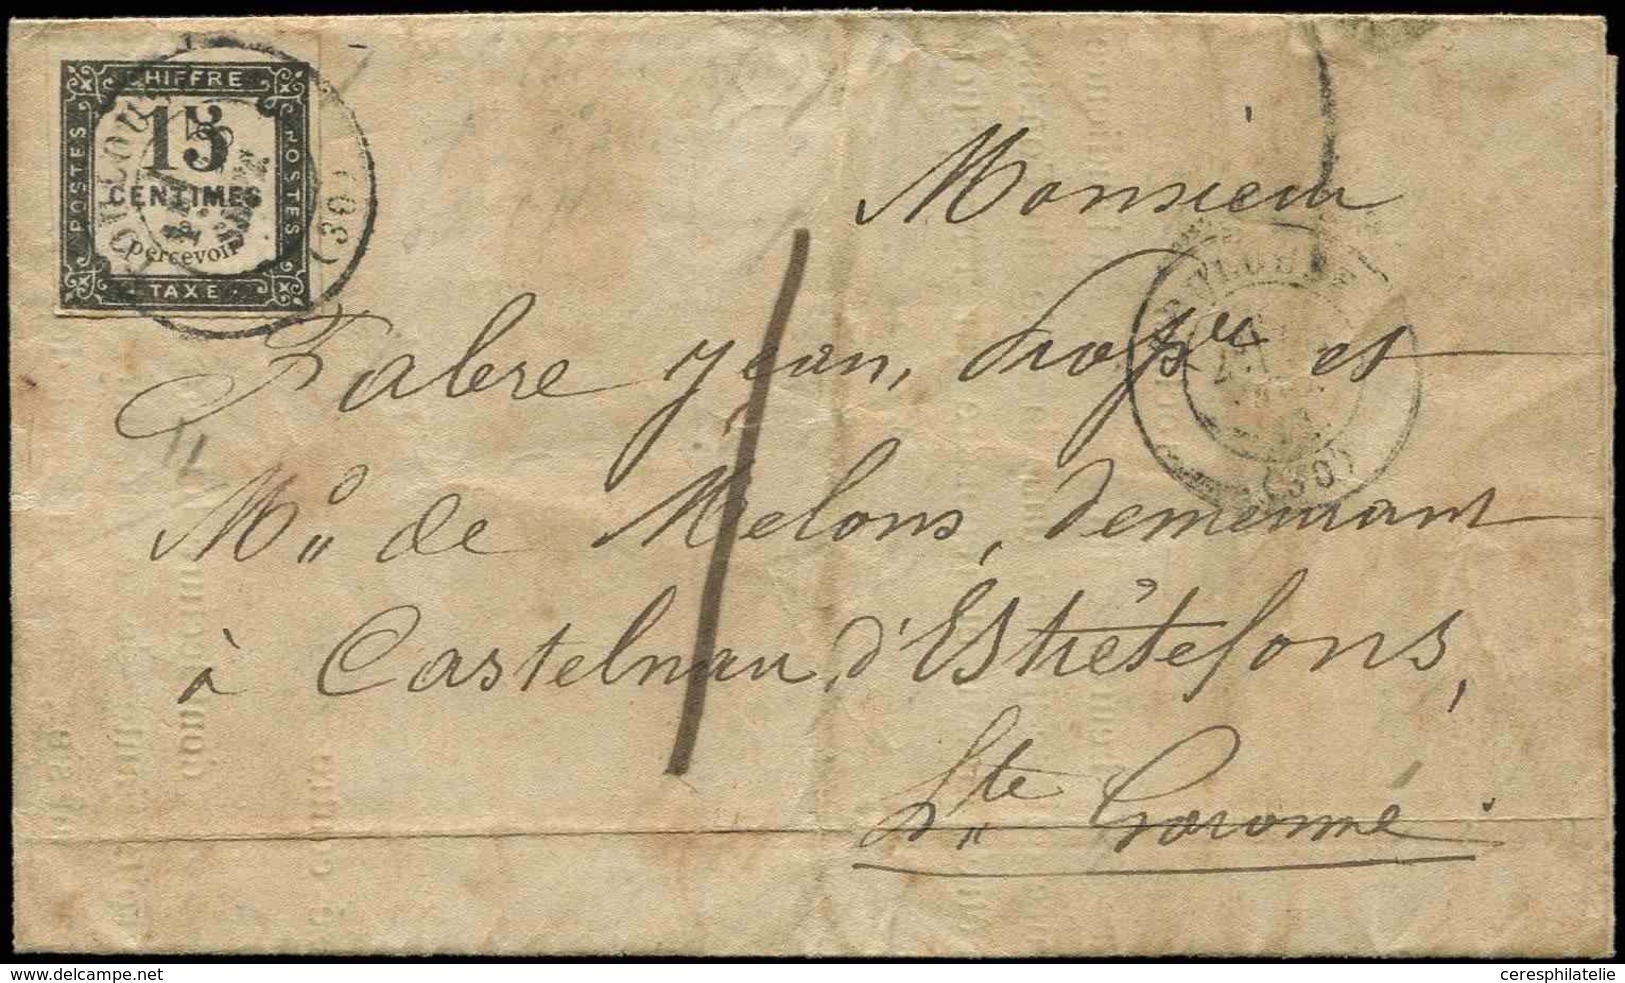 CHIFFRE
POSTES
15
CENTIMES
percevoir
POSTES
TAXE
(30)
TOULOUSE
(30)
Monsieur
Fabre Jean, Prop.re et
M.d de Melons, demeurant
à Castelnau, d'Estrétefons,
H.te Garonne.
www.delcampe.net
ceresphilatelie